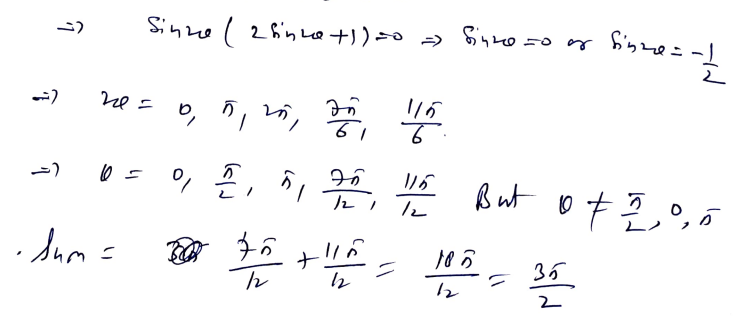 => Sin2θ ( 2 Sin2θ + 1 ) = 0 => Sin2θ = 0 or Sin2θ = -1/2
=> 2θ = 0, π, 2π, 7π/6, 11π/6.
=> θ = 0, π/2, π, 7π/12, 11π/12 But θ ≠ π/2, 0, π
. Sum = 7π/12 + 11π/12 = 18π/12 = 3π/2